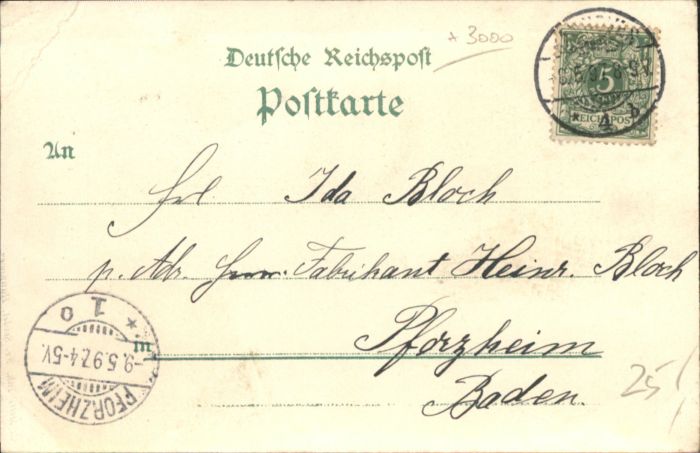 + 3000
Deutsche Reichspost
Postkarte
5
REICHSPOST
4 b
An
Frl Ida Bloch
p. Adr. Herrn Fabrikant Heinr. Bloch
in Pforzheim
Baden.
PFORZHEIM
-9.5.97.4-5V.
1 o
25